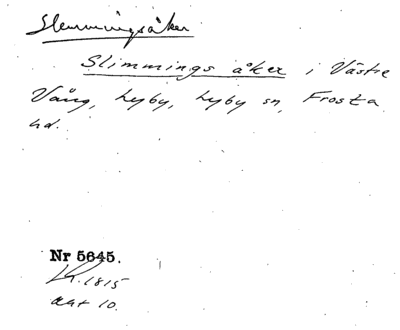 Slemmingsåker
Slimmings åker i Västre
Vång, Lyby, Lyby sn, Frosta
hd.
Nr 5645.
LR. 1815
akt 10.